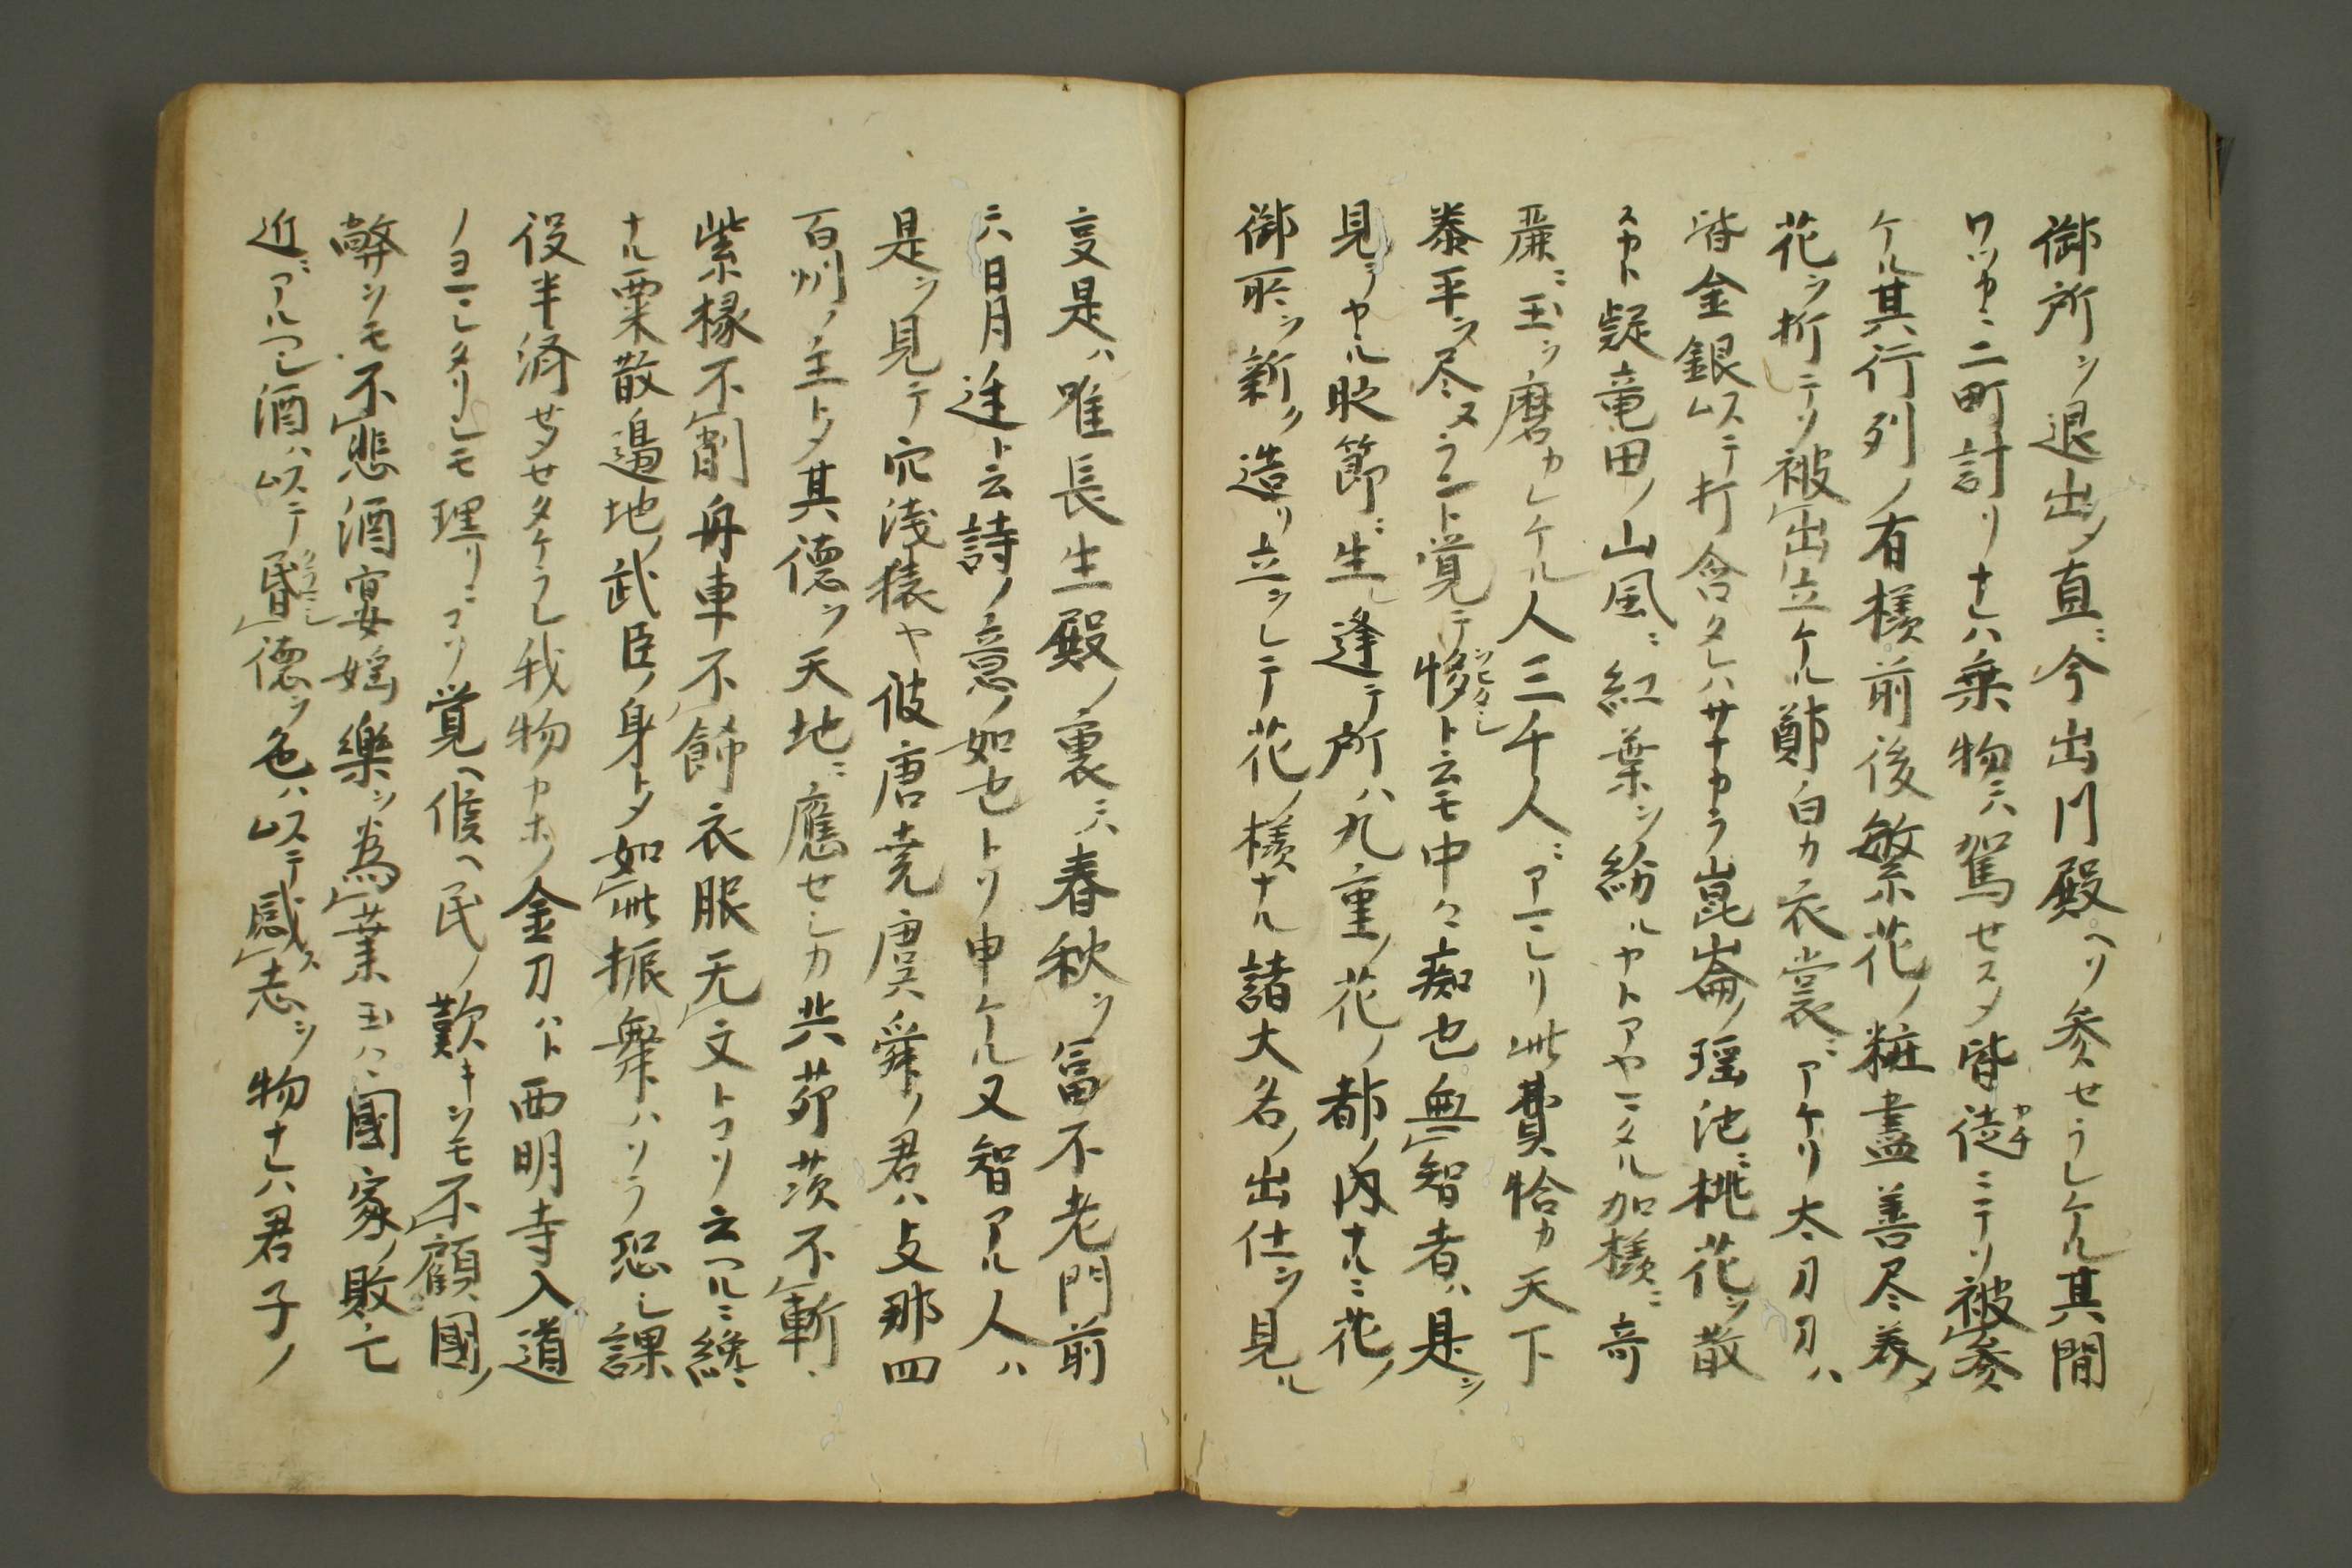 御所ヲ退出シテ直ニ今出川殿ヘソ参セラレケル其間
ワツカニ二町計リナレハ乗物ニハ駕セスシテ皆徒ニテソ被参
ケル其行列ノ有様前後繁花ノ粧盡善尽美シテ
花ヲ折テソ被出立ケル鄭白カ衣裳ニアケリ太刀刀ハ
皆金銀以テ打含タレハサナカラ崑崙ノ瑶池ニ桃花ヲ散
スカト疑竜田ノ山風ニ紅葉ヲ紛ルヤトアヤマタル加様ニ奇
麗ニ玉ヲ磨カレケル人三千人ニアマレリ此費恰カ天下
泰平ヲ尽スラント覚テ侈ト云モ中々痴也無智者ハ是ヲ
見テヤル時節ニ生レ逢テ所ハ九重ノ花ノ都ノ内ナルニ花ノ
御所ヲ新ク造リ立ラレテ花ノ様ナル諸大名ノ出仕ヲ見ル
事是ハ唯長生殿ノ裏ニハ春秋ヲ富不老門前
ニハ日月遅ト云詩ノ意ノ如也トソ申ケル又智アル人ハ
是ヲ見テ穴浅猿ヤ彼唐堯虞舜ノ君ハ支那四
百州ノ主トシテ其徳ヲ天地ニ應セシカ共茆茨不斬
紫椽不削舟車不飾衣服无文トコソ云ツルニ纔
ナル粟散邊地ノ武臣ノ身トシテ如此振舞ハソラ恐シ課
役半済セメセタケラレ我物カホノ金刀ハト西明寺入道
ノヨマレタリシモ理リニコソ覚ヘ候ヘ民ノ歎キヲモ不顧國ノ
弊ヲモ不悲酒宴婬樂ヲ為業玉ハ國家ノ敗亡
近ニアルヘシ酒ハ以テ昏徳ヲ色ハ以テ感志ヲ物ナレハ君子ノ